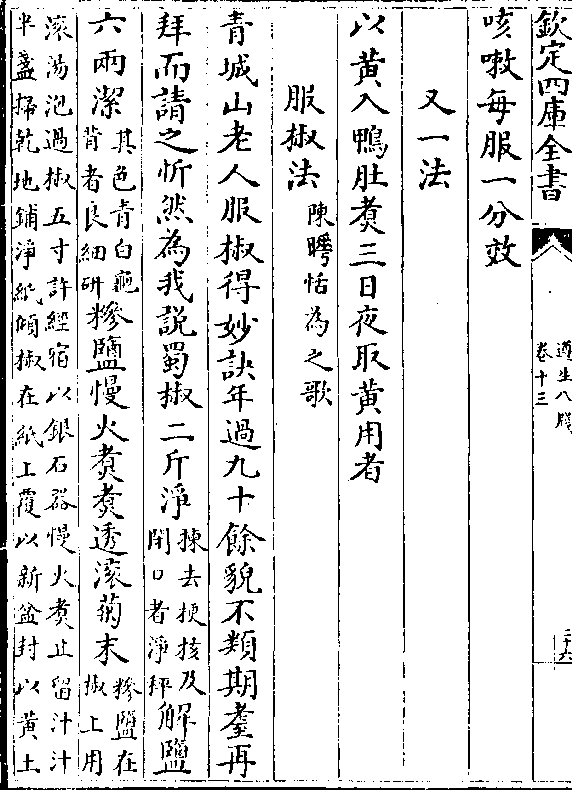 欽定四庫全書
遵生八牋
卷十三
三十六
咳嗽每服一分效
又一法
以黃入鴨肚煮三日夜取黃用者
服椒法
陳曄恬為之歌
青城山老人服椒得妙訣年過九十餘貌不類期耋再
拜而請之忻然為我說蜀椒二斤淨
揀去梗核及
閉口者淨秤
解鹽
六兩潔
其色青白龜
背者良細研
糝鹽慢火煮煮透滾菊末
糝鹽在
椒上用
滾湯泡過椒五寸許經宿以銀石器慢火煮止留汁汁
半盞掃乾地鋪淨紙傾椒在紙上覆以新盆封以黃土